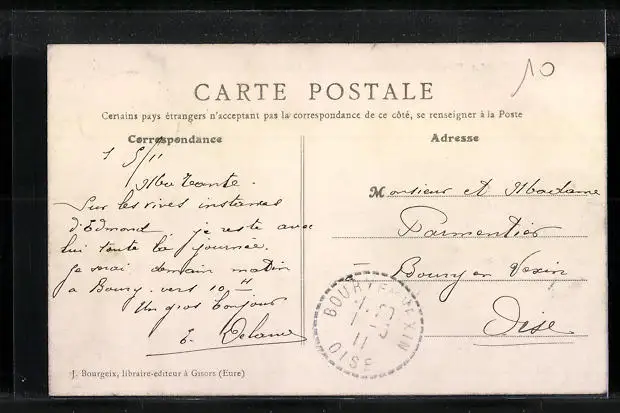 10
CARTE POSTALE
Certains pays étrangers n'acceptant pas la correspondance de ce côté, se renseigner à la Poste
Correspondance
1 5/11
Ma Tante.
Sur les vives instances
d'Edmond, je reste avec
lui toute la journée.
Je serai demain matin
a Bourg. vers 10 H
Un gros bonjour
E.
J. Bourgeix, libraire-éditeur à Gisors (Eure)
Adresse
Monsieur et Madame
Parmentier
Boury en Vexin
Oise
BOURY-EN-VEXIN
11
OISE